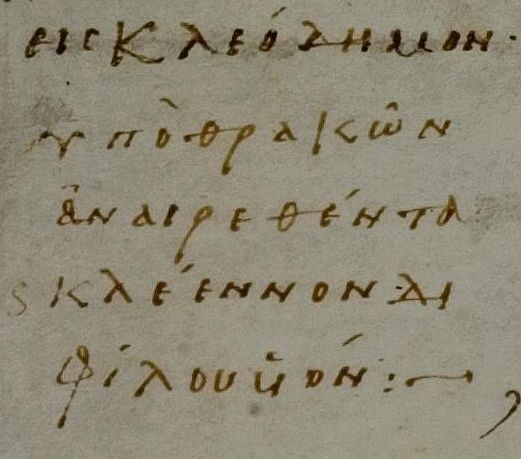 εις Κλεόδημον·
υπὸ θρακῶν
ἀναιρεθέντα
ϛ κλέεννον δι
φίλου ὑιόν :—